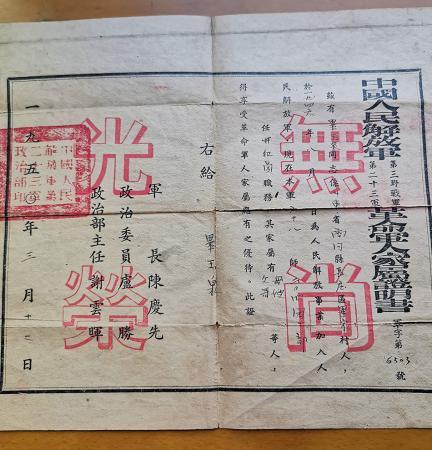 中國人民解放軍
第三野戰軍
第二十三軍
革命軍人家屬證明書
軍字第6303號
茲有同志係山東省縣區村人，
於一九四六年八月日為人民解放事業加入人
民解放軍，現在本軍師
任職務，其家屬有等人，
得享受革命軍人家屬應有之優待。此證
右給 畢玉
軍長陳慶先
政治委員盧勝
政治部主任謝雲暉
一九五〇年三月十二日
無尚光榮
中國人民
解放軍第
二十三軍
政治部印